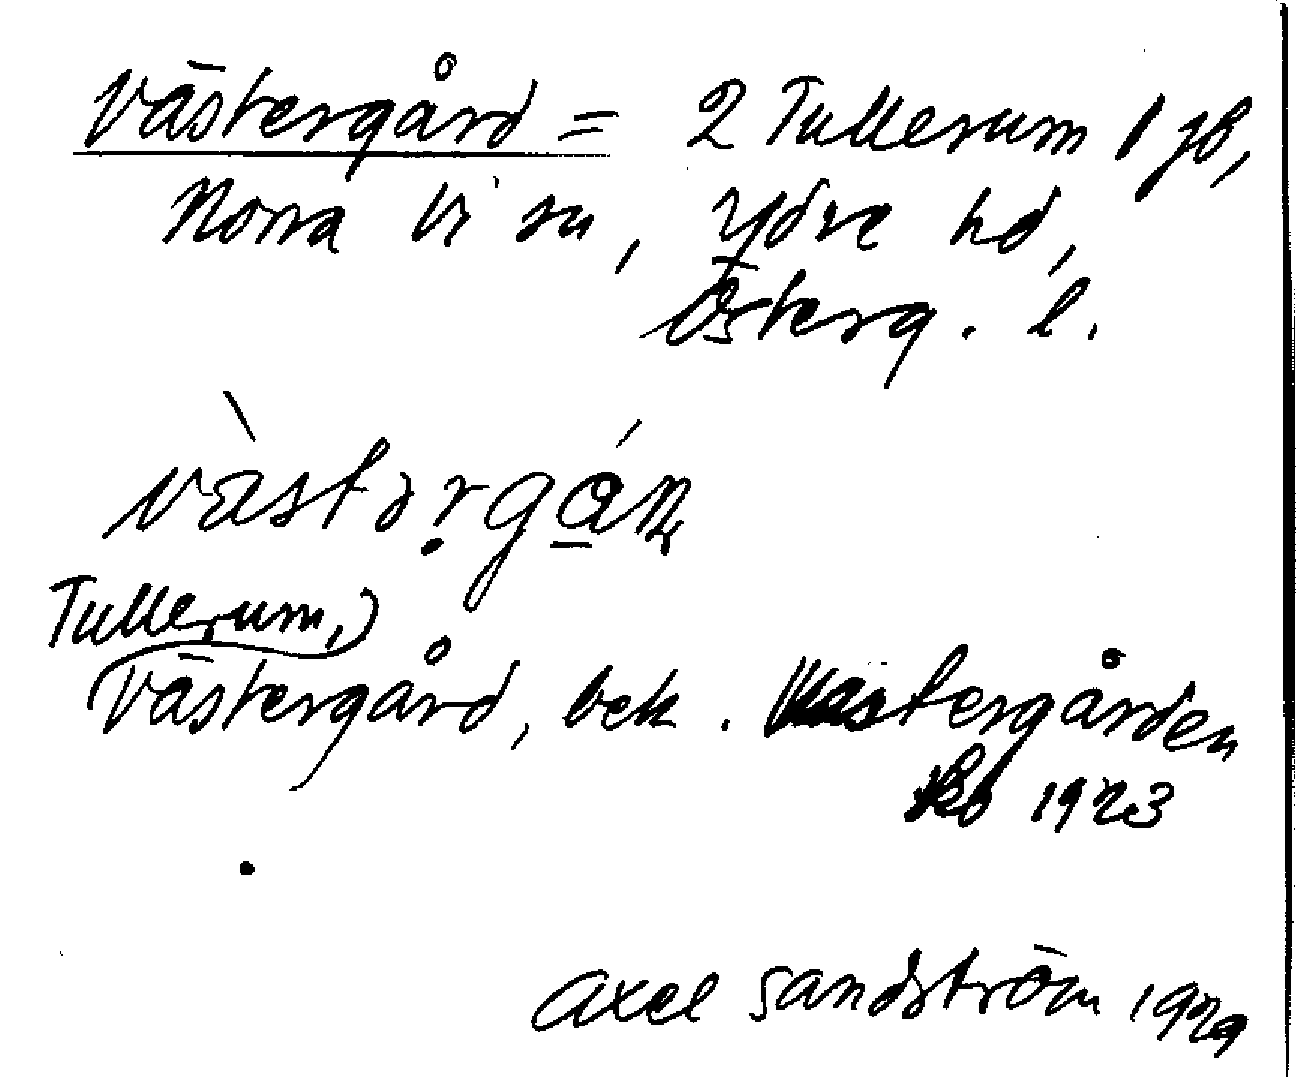 Västergård = 2 Tullerum 1 jb,
Norra Vi sn, Ydre hd,
Österg. l.
vàstərgán
Tullerum,)
Västergård, bek. Västergården
Kb 1923
Axel Sandström 1929